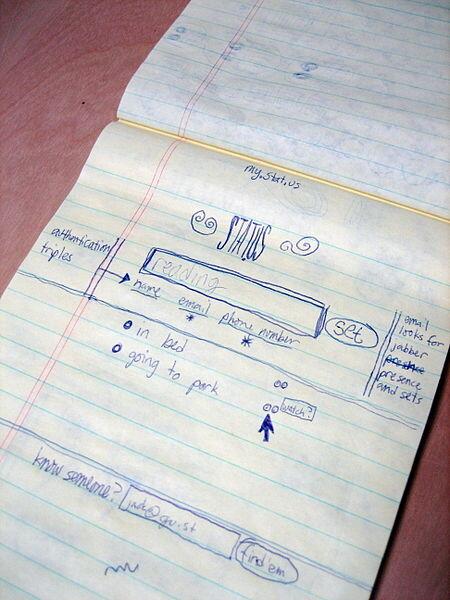 my.stat.us
STATUS
authentication
triples
reading
set
name
email
phone number
* *
email
looks for
jabber
presence
and sets
in bed
going to park
watch?
know someone?
jack@gu.st
find'em